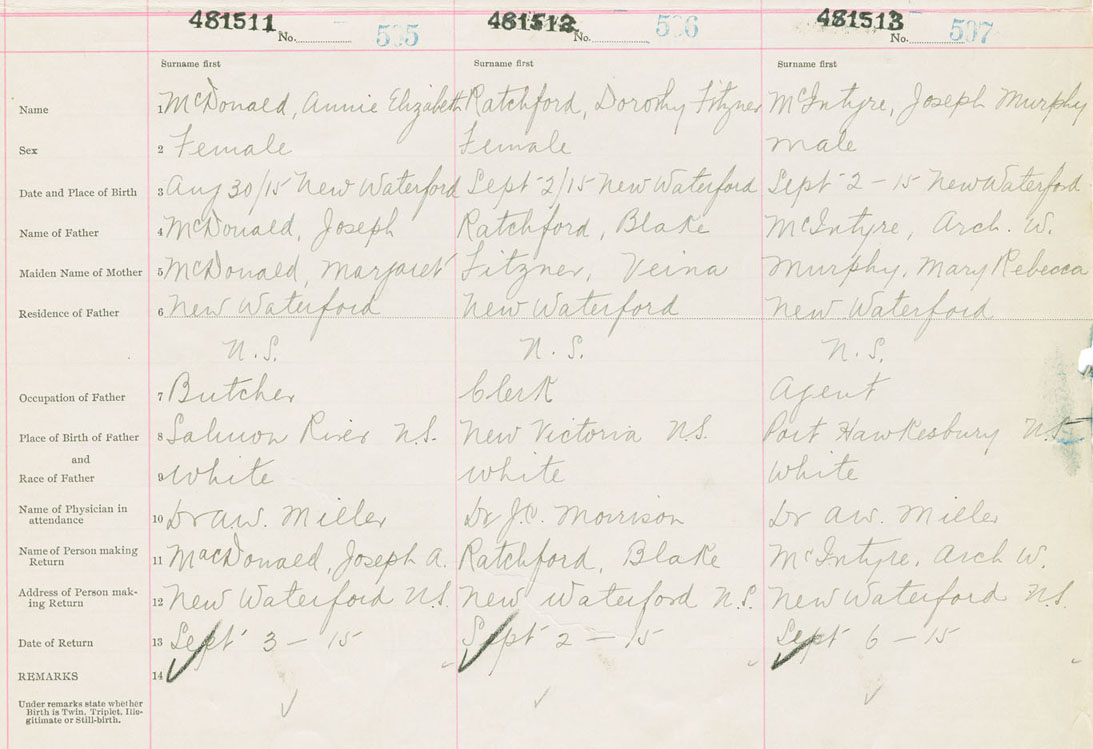 481511 No. 535 481512 No. 536 481513 No. 537
Surname first Surname first Surname first
Name 1 McDonald, Annie Elizabeth Ratchford, Dorothy Fitzner McIntyre, Joseph Murphy
Sex 2 Female Female Male
Date and Place of Birth 3 Aug 30/15 New Waterford Sept 2/15 New Waterford Sept 2 - 15 New Waterford
Name of Father 4 McDonald, Joseph Ratchford, Blake McIntyre, Arch. W.
Maiden Name of Mother 5 McDonald, Margaret Fitzner, Veina Murphy, Mary Rebecca
Residence of Father 6 New Waterford New Waterford New Waterford
N.S. N.S. N.S.
Occupation of Father 7 Butcher Clerk Agent
Place of Birth of Father 8 Salmon River N.S. New Victoria N.S. Port Hawkesbury N.S.
and
Race of Father 9 White White White
Name of Physician in
attendance 10 Dr A.W. Miller Dr J.C. Morrison Dr A.W. Miller
Name of Person making
Return 11 MacDonald, Joseph A. Ratchford, Blake McIntyre, Arch W.
Address of Person mak-
ing Return 12 New Waterford N.S. New Waterford N.S. New Waterford N.S.
Date of Return 13 Sept 3 - 15 Sept 2 - 15 Sept 6 - 15
REMARKS 14
Under remarks state whether
Birth is Twin, Triplet, Ille-
gitimate or Still-birth.